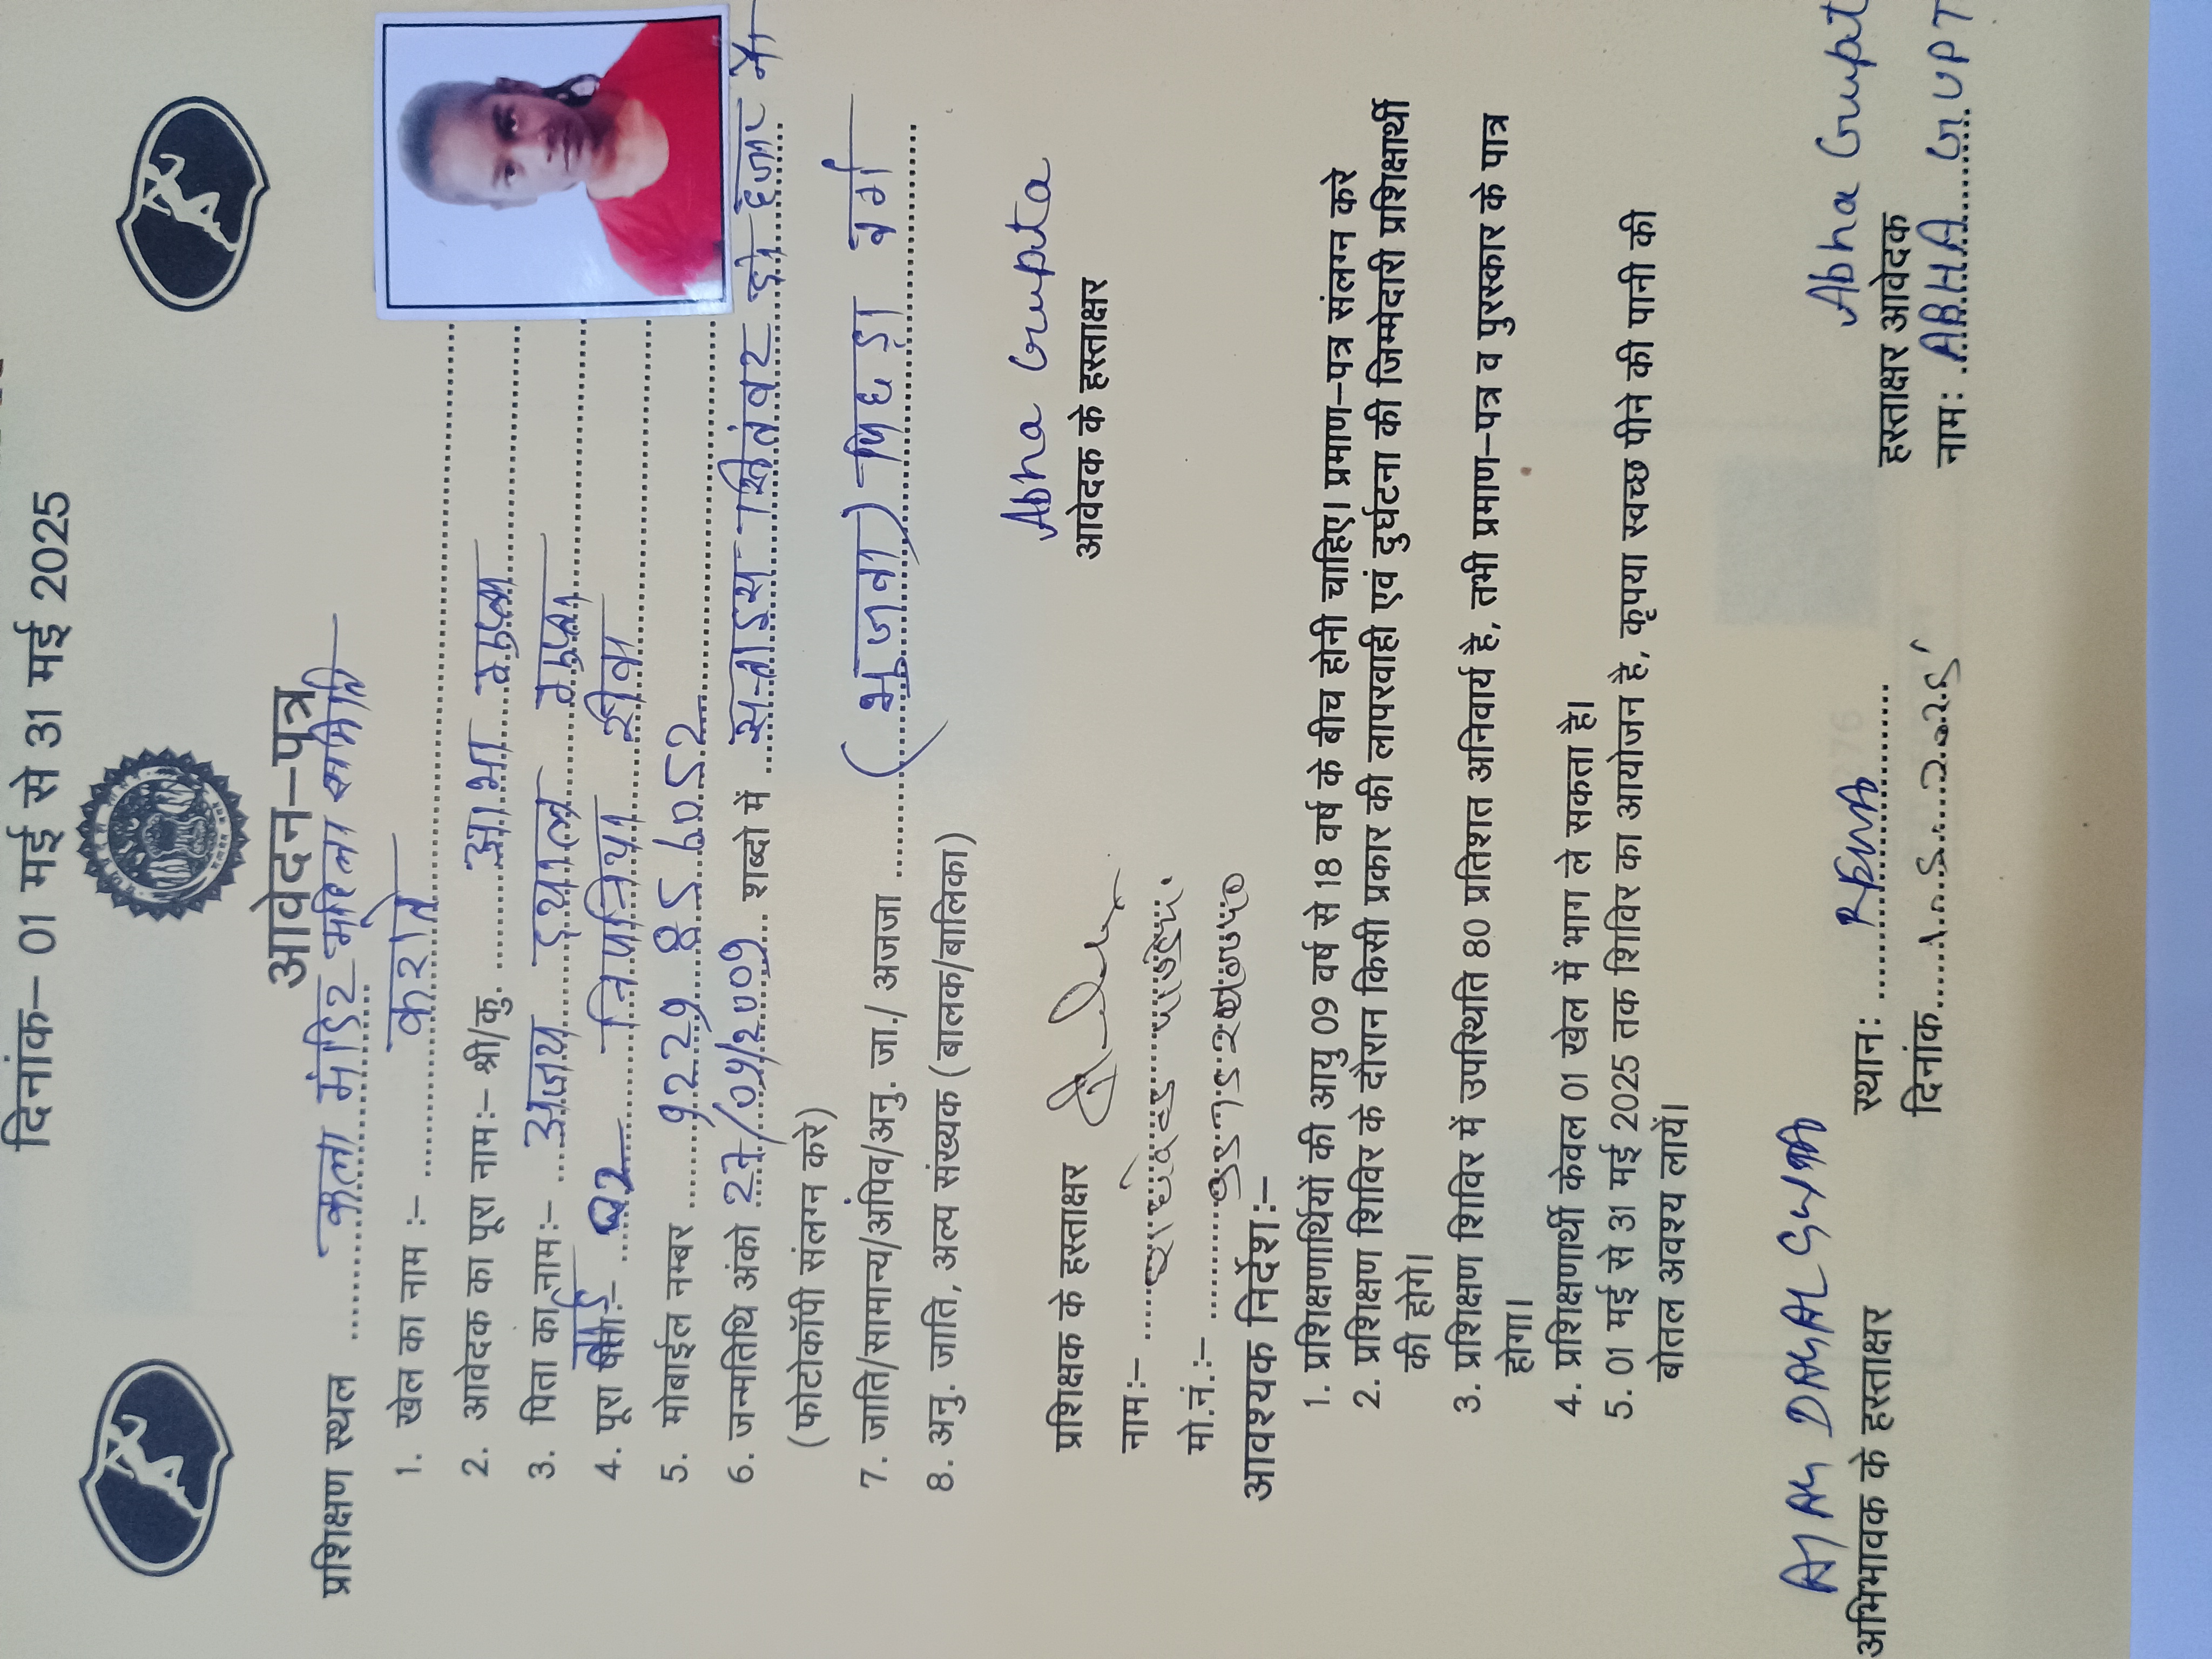 दिनांक– 01 मई से 31 मई 2025
आवेदन–पत्र
प्रशिक्षण स्थल ......... कला मंदिर महिला समिति
1. खेल का नाम :– ......... कराते .........
2. आवेदक का पूरा नाम:– श्री/कु. ......... आभा गुप्ता .........
3. पिता का नाम:– ......... अजय दयाल गुप्ता .........
4. पूरा वार्ड ......... 02 .........
5. मोबाईल नम्बर .........
6. जन्मतिथि अंको ......... शब्दो में ......... सत्ताइस सितंबर दो हजार नौ
(फोटोकॉपी संलग्न करे)
7. जाति/सामान्य/अपिव/अनु. जा./ अजजा ......... (भुजवा) पिछड़ा वर्ग
8. अनु. जाति, अल्प संख्यक (बालक/बालिका)
Abha Gupta
आवेदक के हस्ताक्षर
प्रशिक्षक के हस्ताक्षर
नाम:– ......... पाण्डेय.
मो.नं.:– .........
आवश्यक निर्देश:–
1. प्रशिक्षणार्थियों की आयु 09 वर्ष से 18 वर्ष के बीच होनी चाहिए। प्रमाण–पत्र संलग्न करे
2. प्रशिक्षण शिविर के दौरान किसी प्रकार की लापरवाही एवं दुर्घटना की जिम्मेदारी प्रशिक्षार्थी
की होगी।
3. प्रशिक्षण शिविर में उपस्थिति 80 प्रतिशत अनिवार्य है, तभी प्रमाण–पत्र व पुरस्कार के पात्र
होगा।
4. प्रशिक्षणार्थी केवल 01 खेल में भाग ले सकता है।
5. 01 मई से 31 मई 2025 तक शिविर का आयोजन है, कृपया स्वच्छ पीने की पानी की
बोतल अवश्य लायें।
AJAY DAYAL GUPTA
अभिभावक के हस्ताक्षर
स्थान: ......... REWA .........
दिनांक ......... 1.5.2025
Abha Gupt
हस्ताक्षर आवेदक
नाम: ABHA GUPT